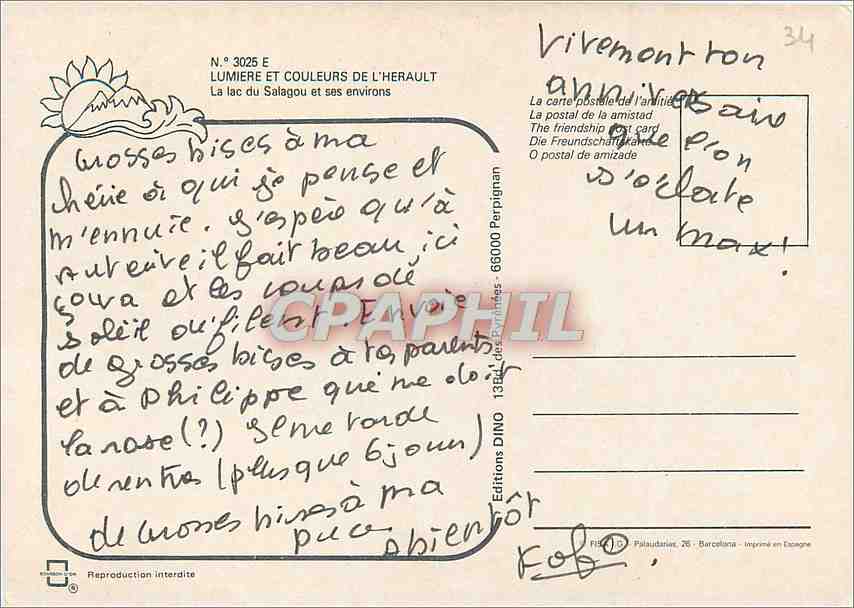 N.° 3025 E
LUMIERE ET COULEURS DE L'HERAULT
La lac du Salagou et ses environs
34
Vivement ton
anniversaire
que l'on
s'éclate
un max!
La carte postale de l'amitié
La postal de la amistad
The friendship post card
Die Freundschaftskarte
O postal de amizade
Grosses bises à ma
chérie à qui je pense et
m'ennuie. J'espère qu'à
il fait beau, ici
ça va et les coups de
soleil défilent. Envoie
de grosses bises à tes parents
et à Philippe qui me doit
la rose (?) Il me tarde
de rentrer (plus que 6 jours)
de Grosses bises à ma
puce
A bientôt
CPAPHIL
Editions DINO 13Bd. des Pyrénées - 66000 Perpignan
FISA I.G. - Palaudarias, 26 - Barcelona - Imprimé en Espagne
Reproduction interdite